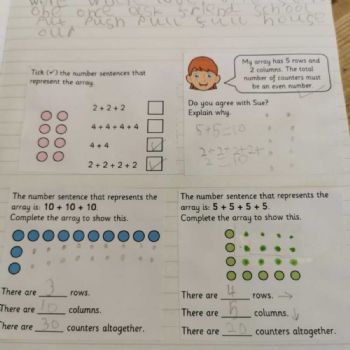 one once ask friend school
put push pull full house
our
Tick (✓) the number sentences that
represent the array.
2 + 2 + 2
4 + 4 + 4 + 4
4 + 4 ✓
2 + 2 + 2 + 2 ✓
My array has 5 rows and
2 columns. The total
number of counters must
be an even number.
Do you agree with Sue?
Explain why.
5+5=10
2+2+2+2+2+
=10
The number sentence that represents the
array is: 10 + 10 + 10.
Complete the array to show this.
There are 3 rows.
There are 10 columns.
There are 30 counters altogether.
The number sentence that represents the
array is: 5 + 5 + 5 + 5.
Complete the array to show this.
There are 4 rows. →
There are 5 columns. ↓
There are 20 counters altogether.